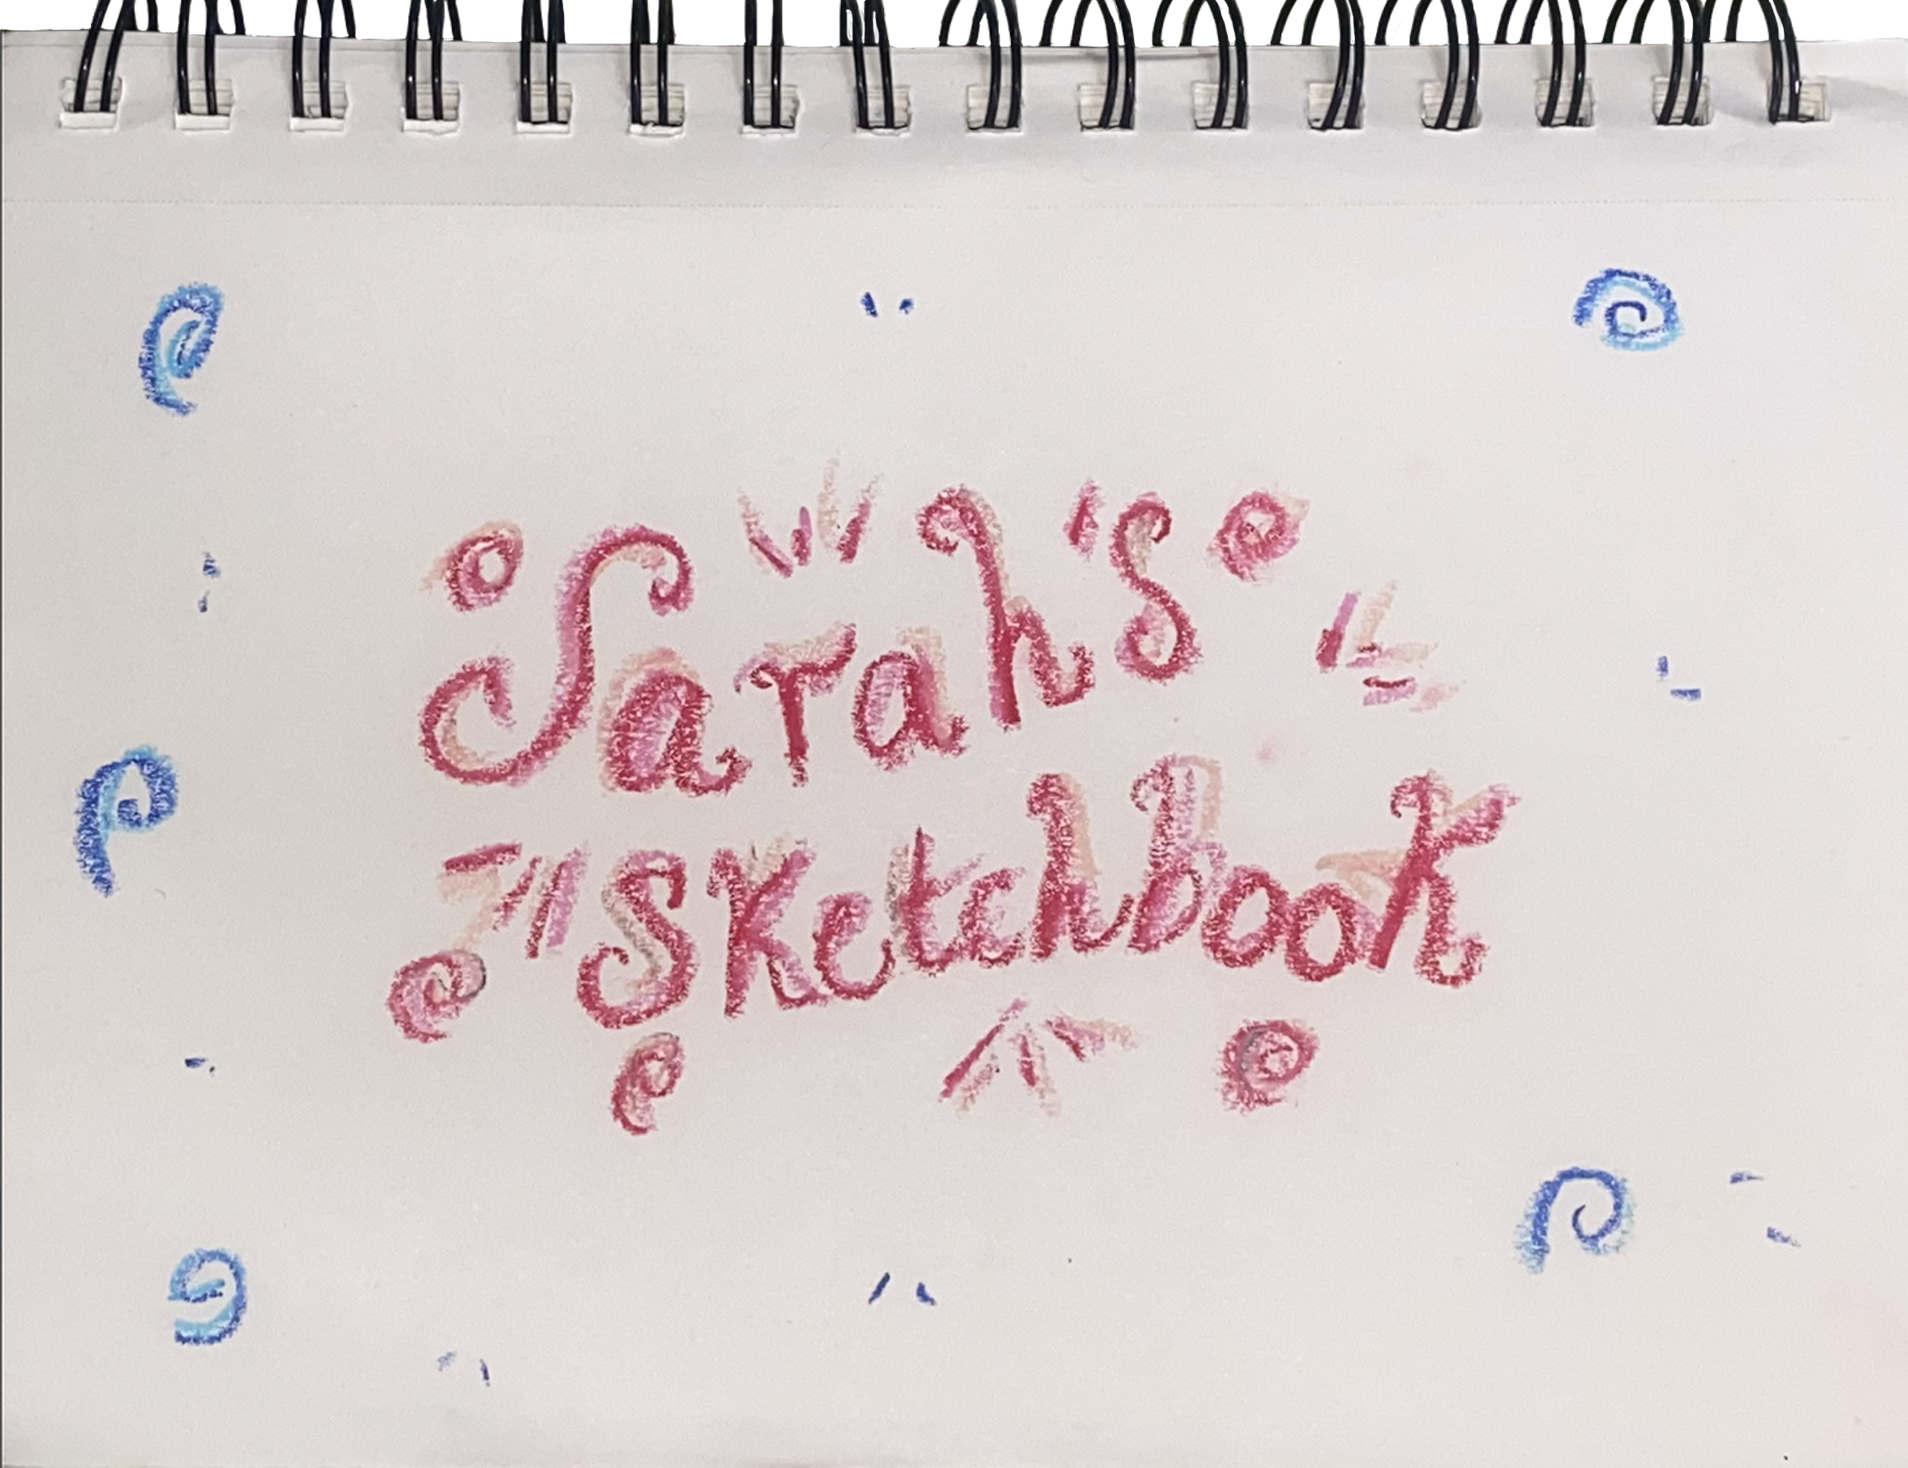 Sarah's
Sketchbook